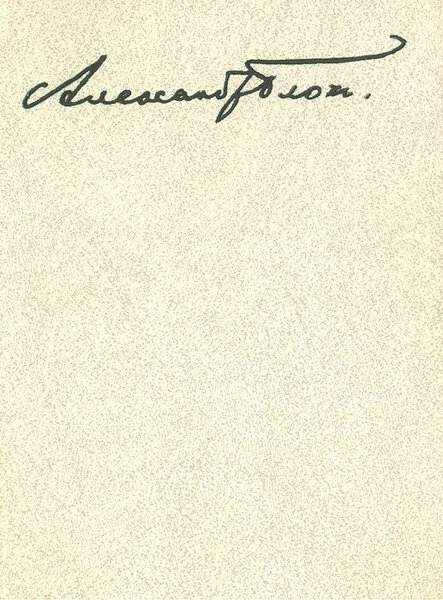 Александр Блок.